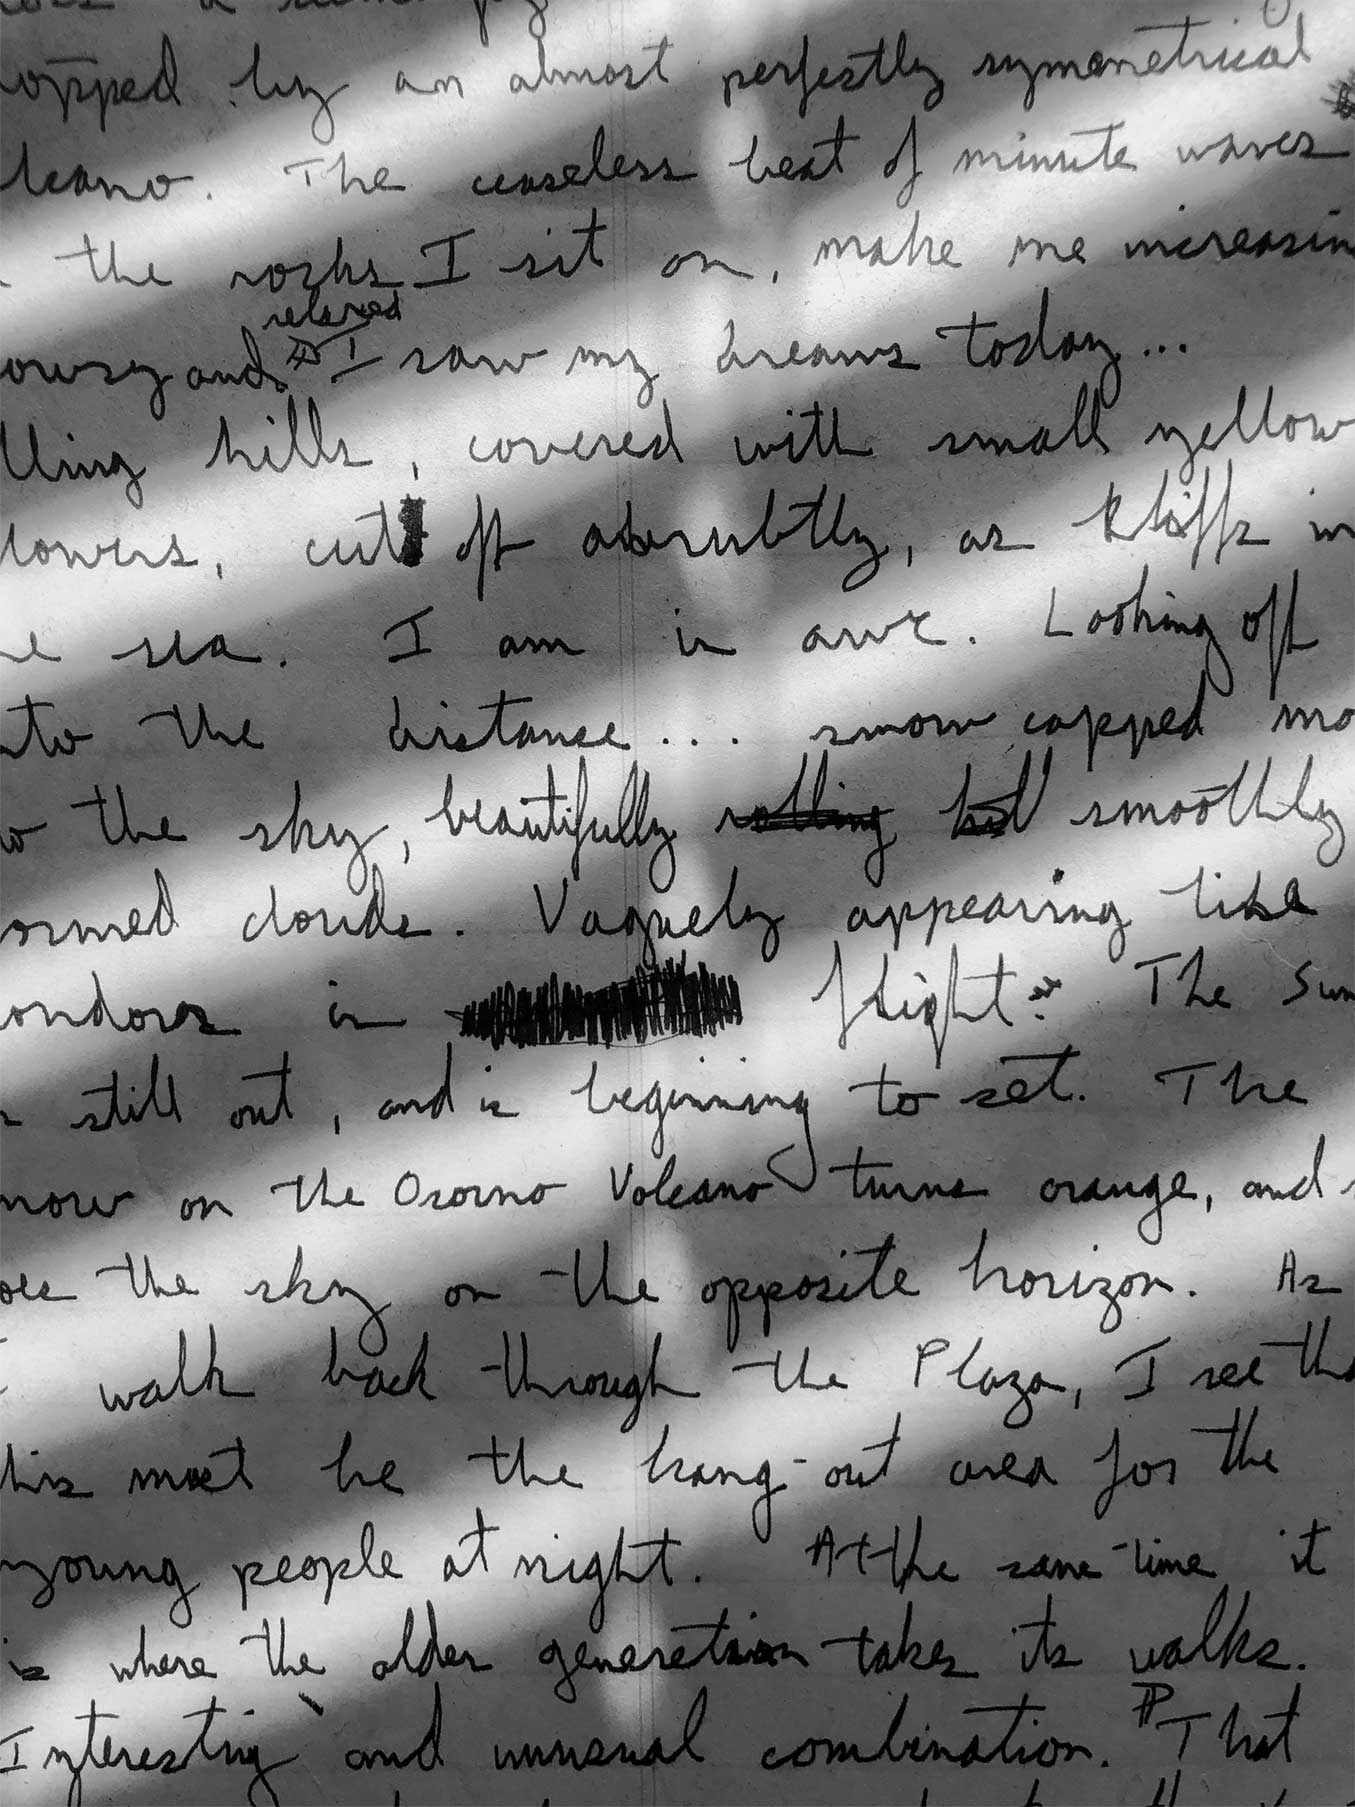 topped by an almost perfectly symmetrical
lcano. The ceaseless beat of minute waves
the rocks I sit on, make me increasin
relaxed
owsy and I saw my dreams today...
lling hills, covered with small yellow
lowers, cut off abrubtly, as kliffs in
e sea. I am in awe. Looking off
nto the distance... snow capped mo
w the sky, beautifully rolling hill smoothly
ormed clouds. Vaguely appearing like
ondors in flight. The Sun
s still out, and is beginning to set. The
now on the Osorno Volcano turns orange, and
oes the sky on the opposite horizon. As
I walk back through the Plaza, I see tha
this must be the hang-out area for the
young people at night. At the same time it
is where the older generation takes its walks.
Interesting and unusual combination. That